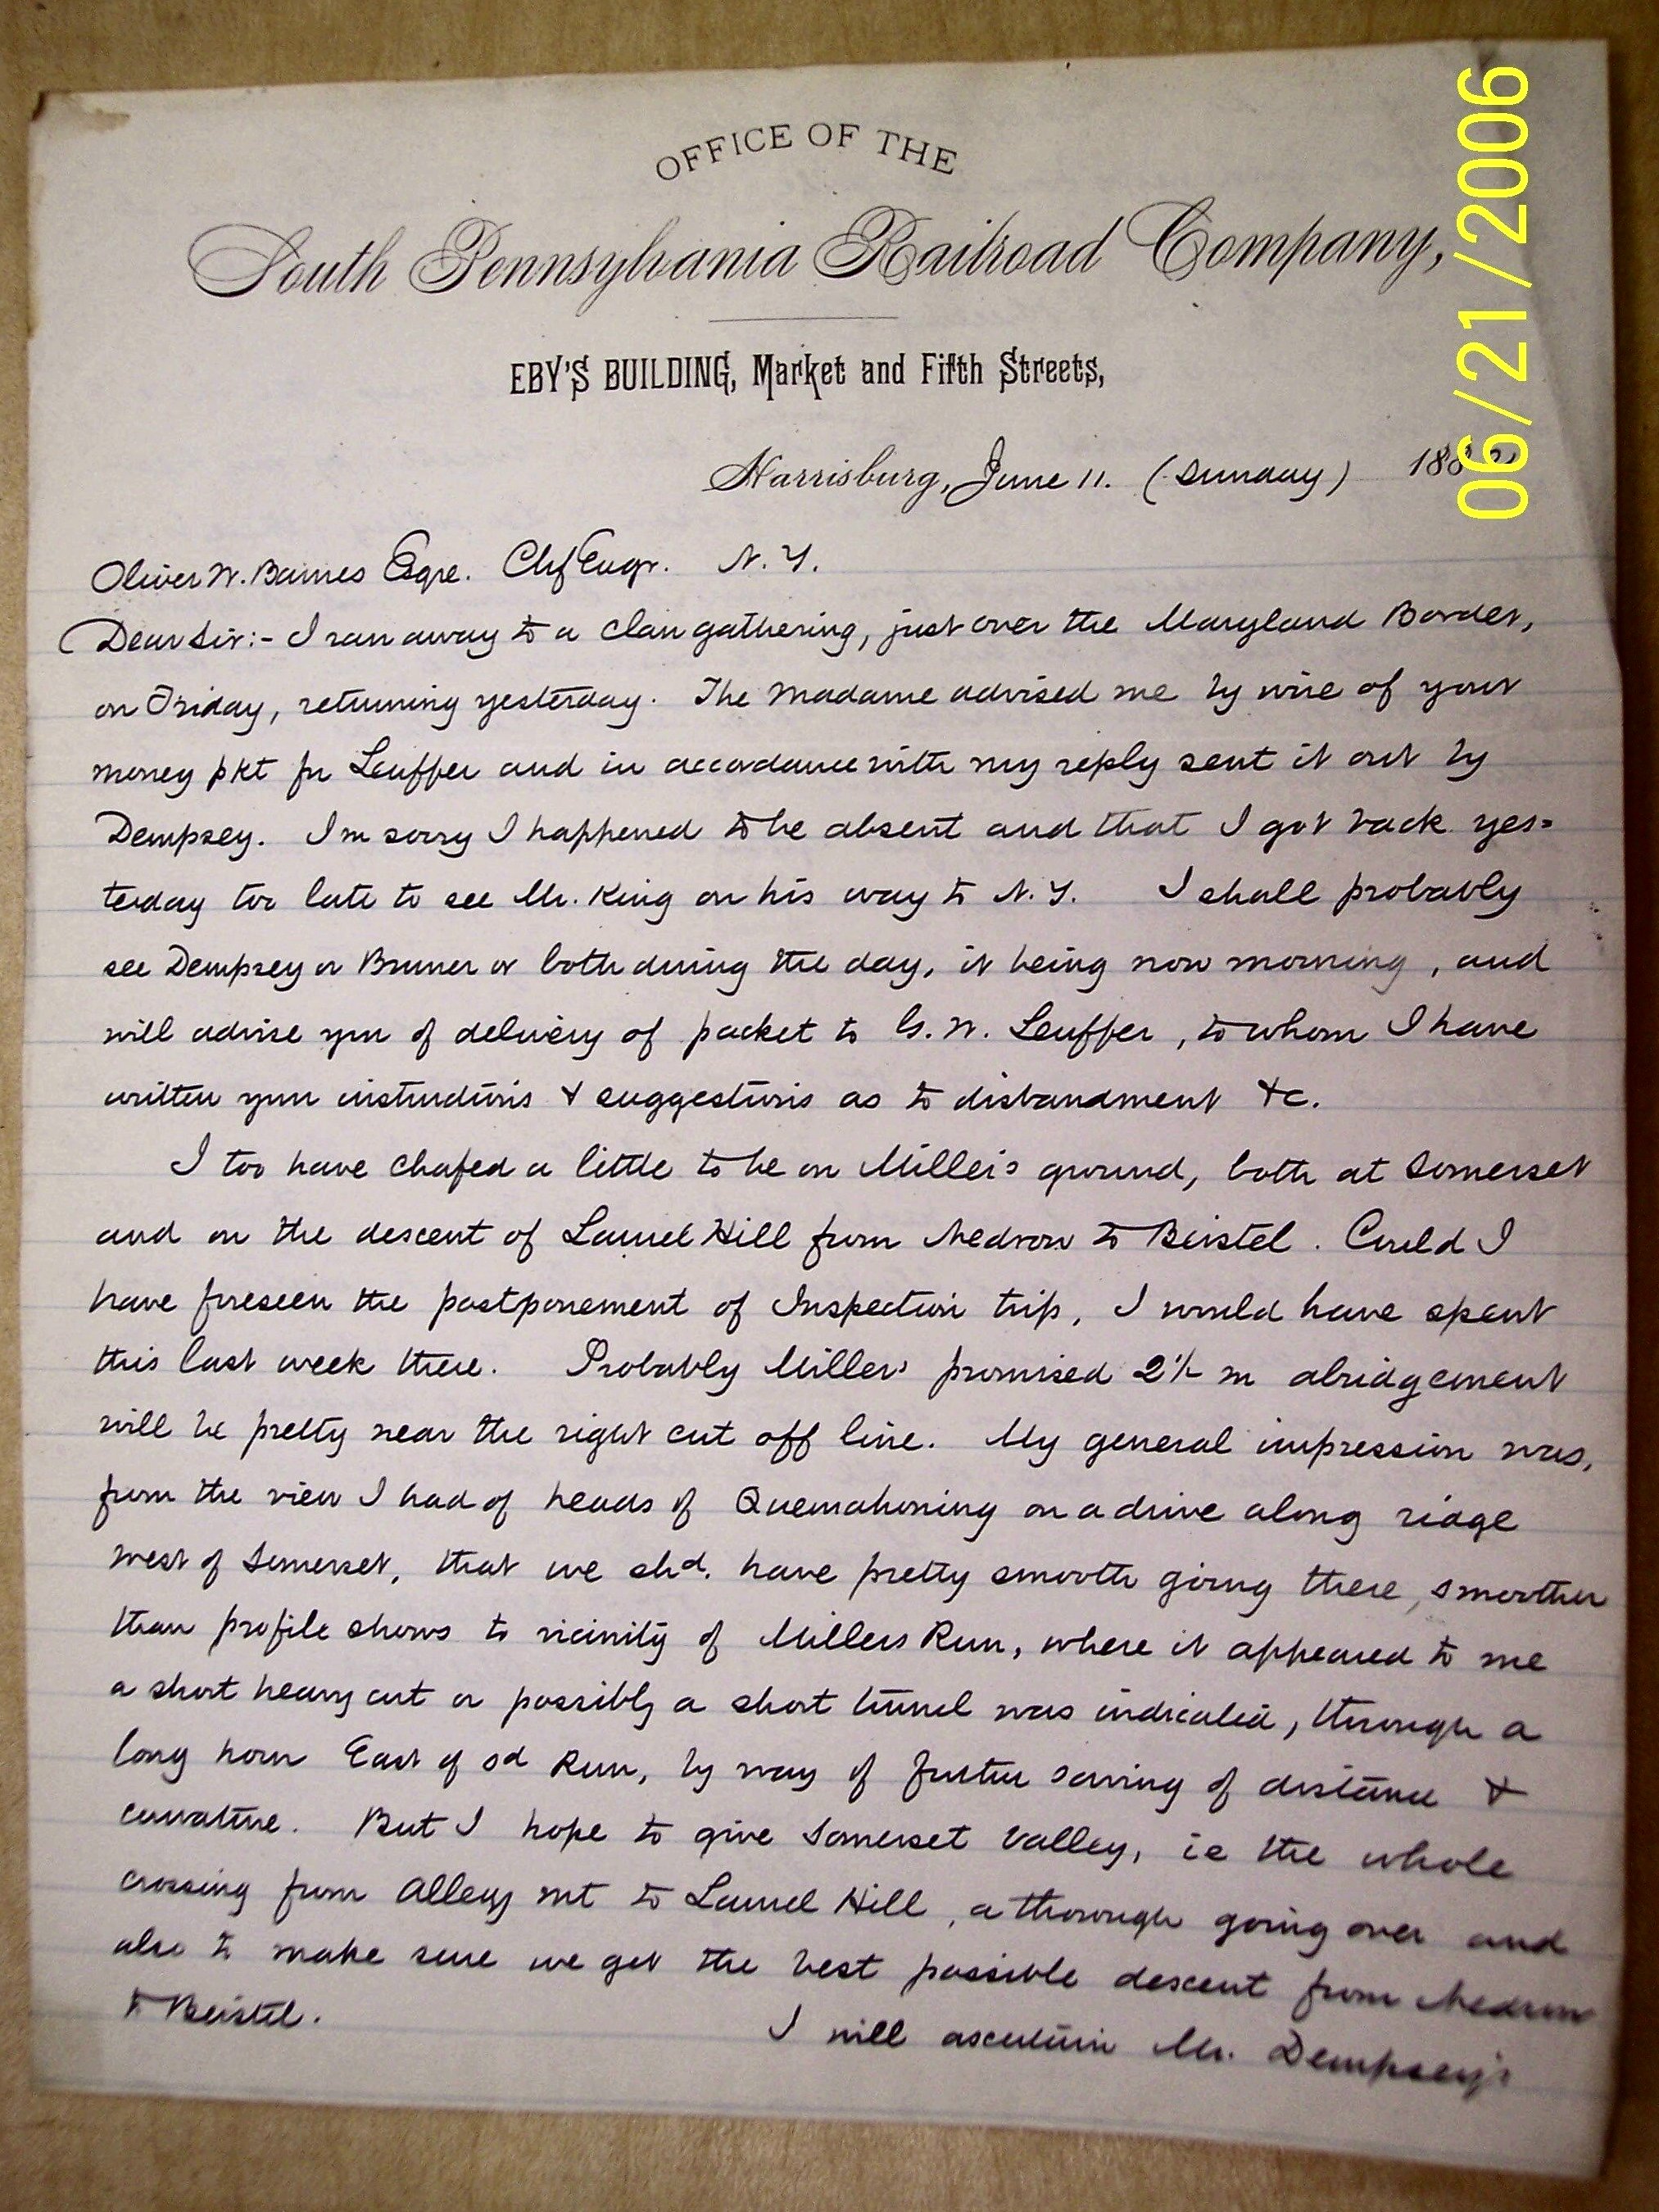 OFFICE OF THE
South Pennsylvania Railroad Company,
EBY'S BUILDING, Market and Fifth Streets,
Harrisburg, June 11. (Sunday) 188
06/21/2006
Oliver W. Barnes Esqre. Chf Engr. N. Y.
Dear Sir:- I ran away to a clan gathering, just over the Maryland Border,
on Friday, returning yesterday. The Madame advised me by wire of your
money pkt for Leuffer and in accordance with my reply sent it out by
Dempsey. I'm sorry I happened to be absent and that I got back yes=
terday too late to see Mr. King on his way to N. Y. I shall probably
see Dempsey or Bruner or both during the day, it being now morning, and
will advise you of delivery of packet to W. Leuffer, to whom I have
written your instructions & suggestions as to disbandment &c.
I too have chafed a little to be on Miller's ground, both at Somerset
and on the descent of Laurel Hill from Medrow to Beistel. Could I
have foreseen the postponement of Inspection trip, I would have spent
this last week there. Probably Millers promised 2½ m abridgement
will be pretty near the right cut off line. My general impression was,
from the view I had of heads of Quemahoning on a drive along ridge
west of Somerset, that we shd. have pretty smooth going there, smoother
than profile shows to vicinity of Millers Run, where it appeared to me
a short heavy cut or possibly a short tunnel was indicated, through a
long horn East of sd Run, by way of further saving of distance &
curvature. But I hope to give Somerset Valley, ie the whole
crossing from Allegy mt to Laurel Hill, a thorough going over and
also to make sure we get the best possible descent from Medrow
to Beistel.
I will ascertain Mr. Dempsey's